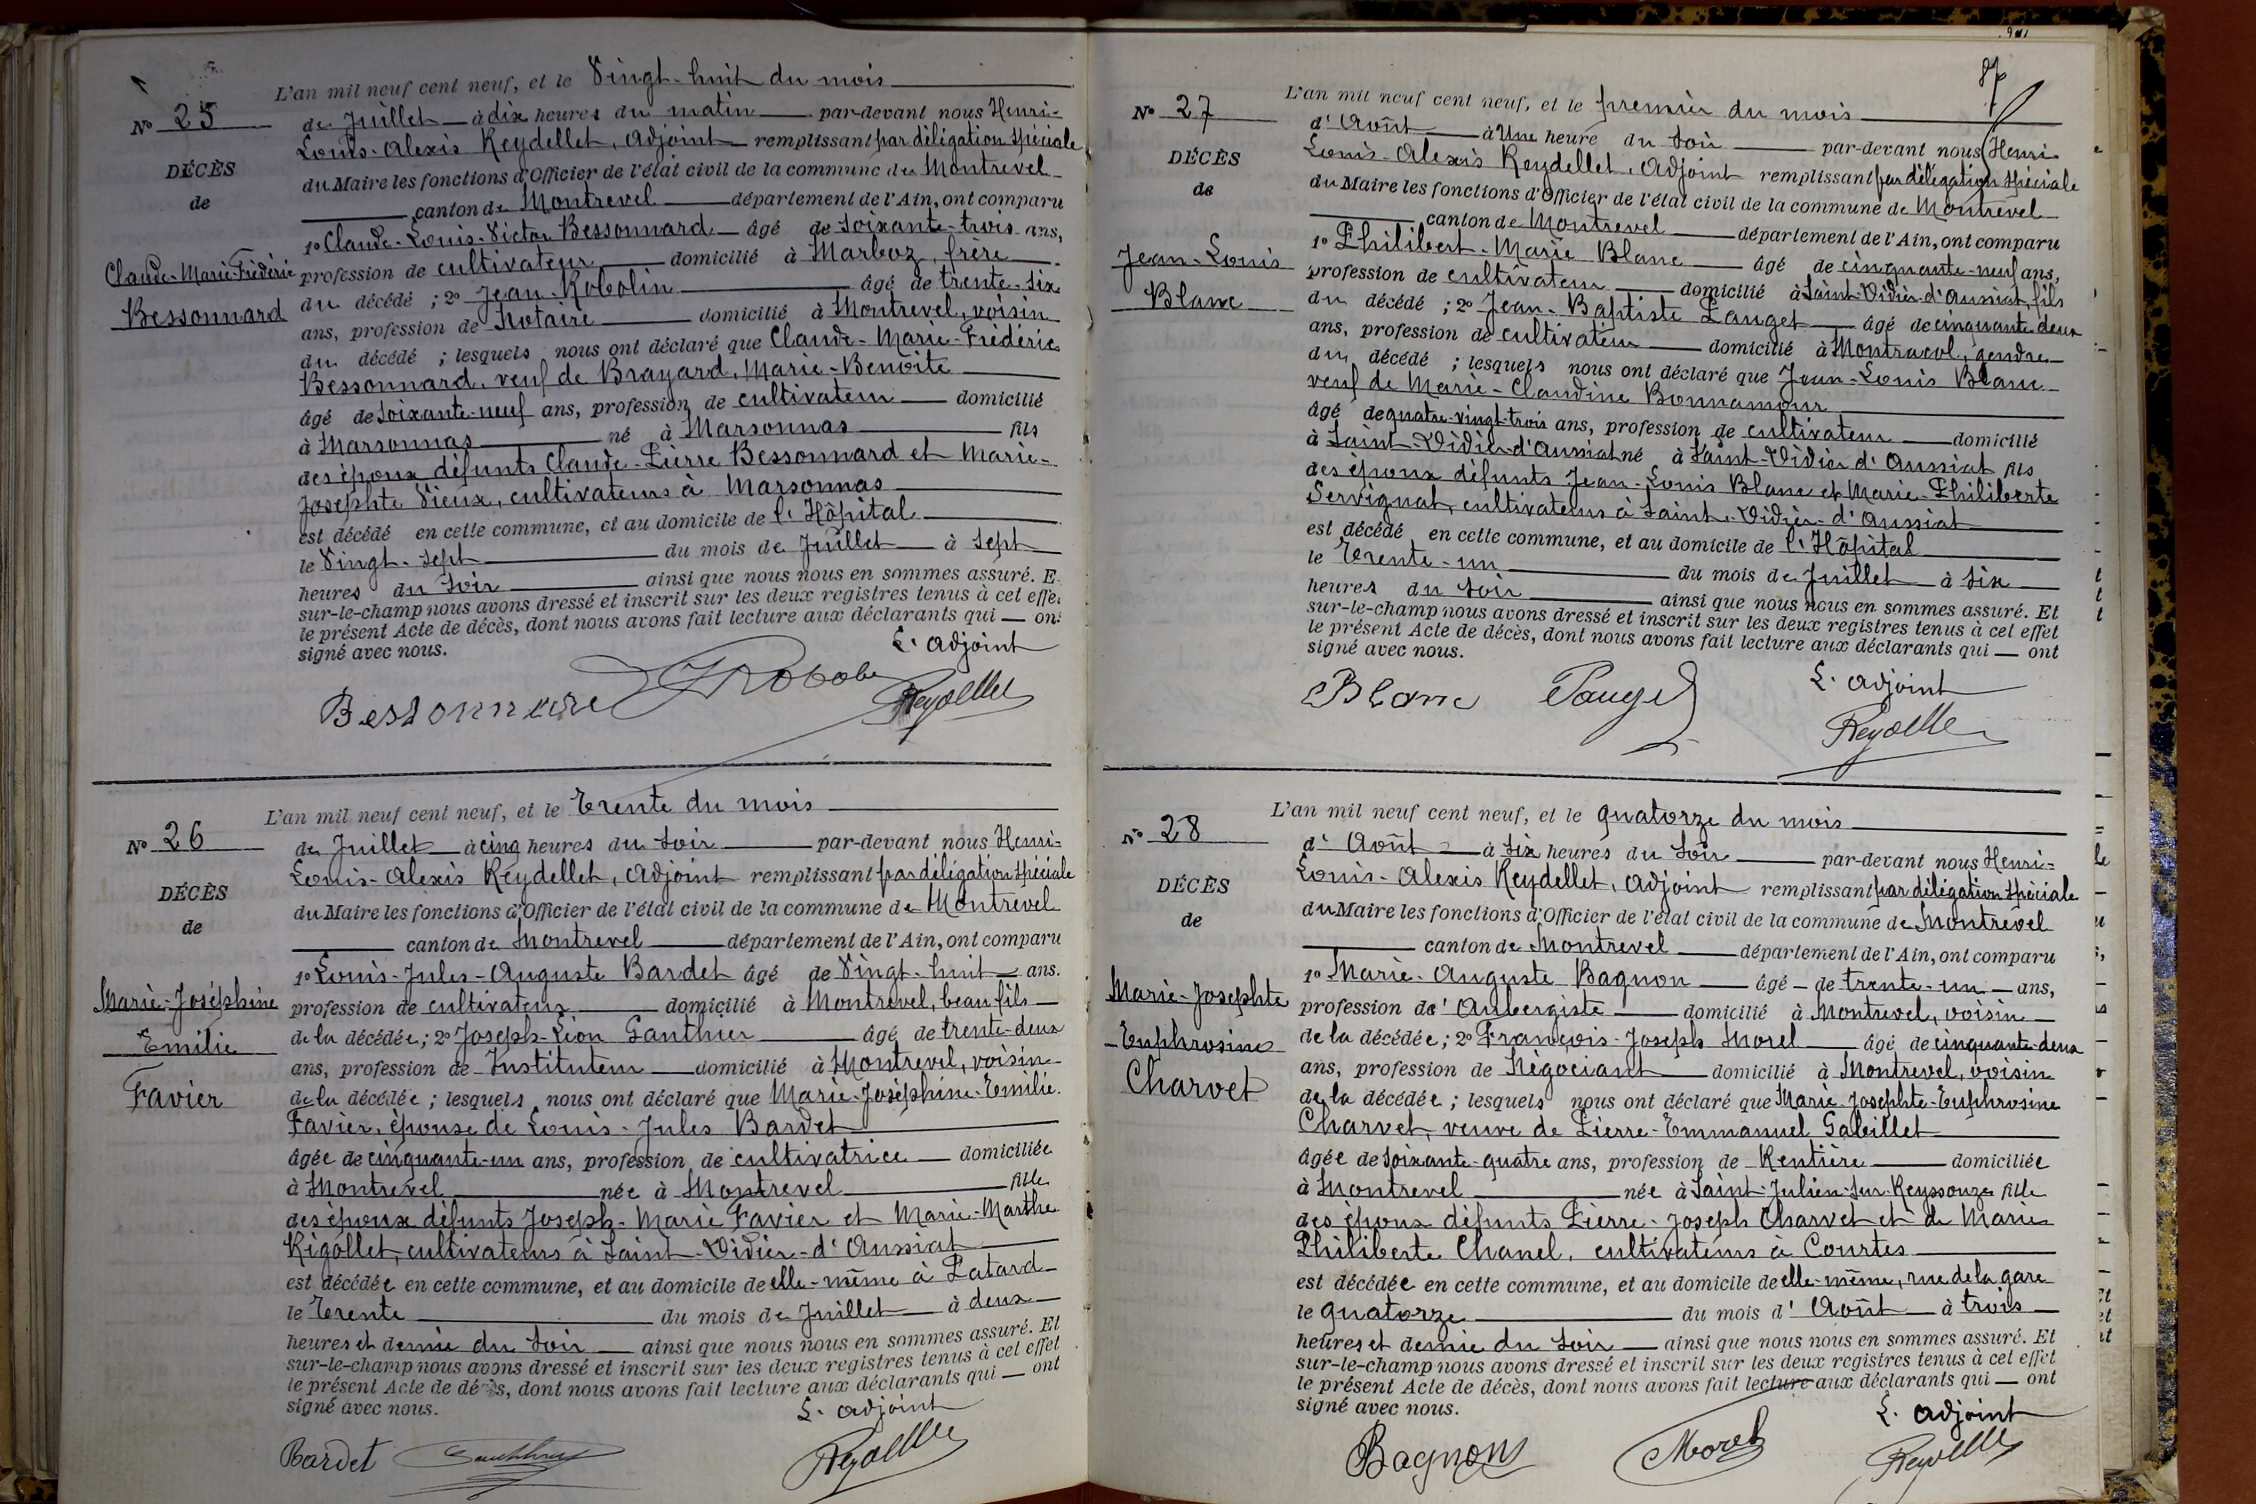 L'an mil neuf cent neuf, et le Vingt-huit du mois
No 25
de Juillet à dix heures du matin par-devant nous Henri-
Louis-Alexis Reydellet, Adjoint remplissant par délégation spéciale
DÉCÈS
du Maire les fonctions d'Officier de l'état civil de la commune de Montrevel
de
canton de Montrevel département de l'Ain, ont comparu
1o Claude-Louis-Victor Bessonnard âgé de soixante-trois ans,
Claude-Marie-Frédéric
profession de cultivateur domicilié à Marboz, frère
Bessonnard
du décédé ; 2o Jean Robolin âgé de trente-six
ans, profession de Notaire domicilié à Montrevel, voisin
du décédé ; lesquels nous ont déclaré que Claude-Marie-Frédéric
Bessonnard, veuf de Brayard, Marie-Benoite
âgé de soixante-neuf ans, profession de cultivateur domicilié
à Marsonnas né à Marsonnas fils
des époux défunts Claude-Pierre Bessonnard et Marie-
Josephte Vieux, cultivateurs à Marsonnas
est décédé en cette commune, et au domicile de l'Hôpital
le Vingt-sept du mois de Juillet à sept
heures du soir ainsi que nous nous en sommes assuré. E
sur-le-champ nous avons dressé et inscrit sur les deux registres tenus à cet effe
le présent Acte de décès, dont nous avons fait lecture aux déclarants qui — on
signé avec nous.
L'adjoint
Bessonnard Robolin Reydellet
L'an mil neuf cent neuf, et le Trente du mois
No 26
de Juillet à cinq heures du soir par-devant nous Henri-
Louis-Alexis Reydellet, Adjoint remplissant par délégation spéciale
DÉCÈS
du Maire les fonctions d'Officier de l'état civil de la commune de Montrevel
de
canton de Montrevel département de l'Ain, ont comparu
1o Louis-Jules-Auguste Bardet âgé de Vingt-huit ans.
Marie-Joséphine
profession de cultivateur domicilié à Montrevel, beau fils
Emilie
de la décédée ; 2o Joseph-Léon Ganthier âgé de trente-deux
ans, profession de Instituteur domicilié à Montrevel, voisin
Favier
de la décédée ; lesquels nous ont déclaré que Marie-Joséphine-Emilie
Favier, épouse de Louis-Jules Bardet
âgée de cinquante-un ans, profession de cultivatrice domiciliée
à Montrevel née à Montrevel fille
des époux défunts Joseph-Marie Favier et Marie-Marthe
Rigollet, cultivateurs à Saint-Didier-d'Aussiat
est décédée en cette commune, et au domicile de elle-même à Patard
le Trente du mois de Juillet à deux
heures et demie du soir ainsi que nous nous en sommes assuré. Et
sur-le-champ nous avons dressé et inscrit sur les deux registres tenus à cet effet
le présent Acte de décès, dont nous avons fait lecture aux déclarants qui — ont
signé avec nous.
L'adjoint
Bardet Reydellet
L'an mil neuf cent neuf, et le premier du mois
No 27
d'Août à Une heure du soir par-devant nous Henri-
Louis-Alexis Reydellet, Adjoint remplissant par délégation spéciale
DÉCÈS
du Maire les fonctions d'Officier de l'état civil de la commune de Montrevel
de
canton de Montrevel département de l'Ain, ont comparu
1o Philibert-Marie Blanc âgé de cinquante-neuf ans,
Jean-Louis
profession de cultivateur domicilié à Saint-Didier-d'Aussiat, fils
Blanc
du décédé ; 2o Jean-Baptiste Pauget âgé de cinquante-deux
ans, profession de cultivateur domicilié à Montracol, gendre
du décédé ; lesquels nous ont déclaré que Jean-Louis Blanc
veuf de Marie-Claudine Bonnamour
âgé de quatre-vingt-trois ans, profession de cultivateur domicilié
à Saint-Didier-d'Aussiat né à Saint-Didier d'Aussiat fils
des époux défunts Jean-Louis Blanc et Marie-Philiberte
Servignat, cultivateurs à Saint-Didier-d'Aussiat
est décédé en cette commune, et au domicile de l'Hôpital
le Trente-un du mois de Juillet à six
heures du soir ainsi que nous nous en sommes assuré. Et
sur-le-champ nous avons dressé et inscrit sur les deux registres tenus à cet effet
le présent Acte de décès, dont nous avons fait lecture aux déclarants qui — ont
signé avec nous.
L'adjoint
Blanc Pauget Reydellet
L'an mil neuf cent neuf, et le quatorze du mois
No 28
d'Août à six heures du soir par-devant nous Henri-
Louis-Alexis Reydellet, Adjoint remplissant par délégation spéciale
DÉCÈS
du Maire les fonctions d'Officier de l'état civil de la commune de Montrevel
de
canton de Montrevel département de l'Ain, ont comparu
1o Marie-Auguste Bagnon âgé de trente-un ans,
Marie-Josephte
profession de d'Aubergiste domicilié à Montrevel, voisin
Euphrosine
de la décédée ; 2o François-Joseph Morel âgé de cinquante-deux
Charvet
ans, profession de Négociant domicilié à Montrevel, voisin
de la décédée ; lesquels nous ont déclaré que Marie-Josephte-Euphrosine
Charvet, veuve de Pierre-Emmanuel Gabillet
âgée de soixante-quatre ans, profession de Rentière domiciliée
à Montrevel née à Saint-Julien-sur-Reyssouze fille
des époux défunts Pierre-Joseph Charvet et de Marie
Philiberte Chanel, cultivateurs à Courtes
est décédée en cette commune, et au domicile de elle-même, rue de la gare
le quatorze du mois d'Août à trois
heures et demie du soir ainsi que nous nous en sommes assuré. Et
sur-le-champ nous avons dressé et inscrit sur les deux registres tenus à cet effet
le présent Acte de décès, dont nous avons fait lecture aux déclarants qui — ont
signé avec nous.
L'adjoint
Bagnon Morel Reydellet